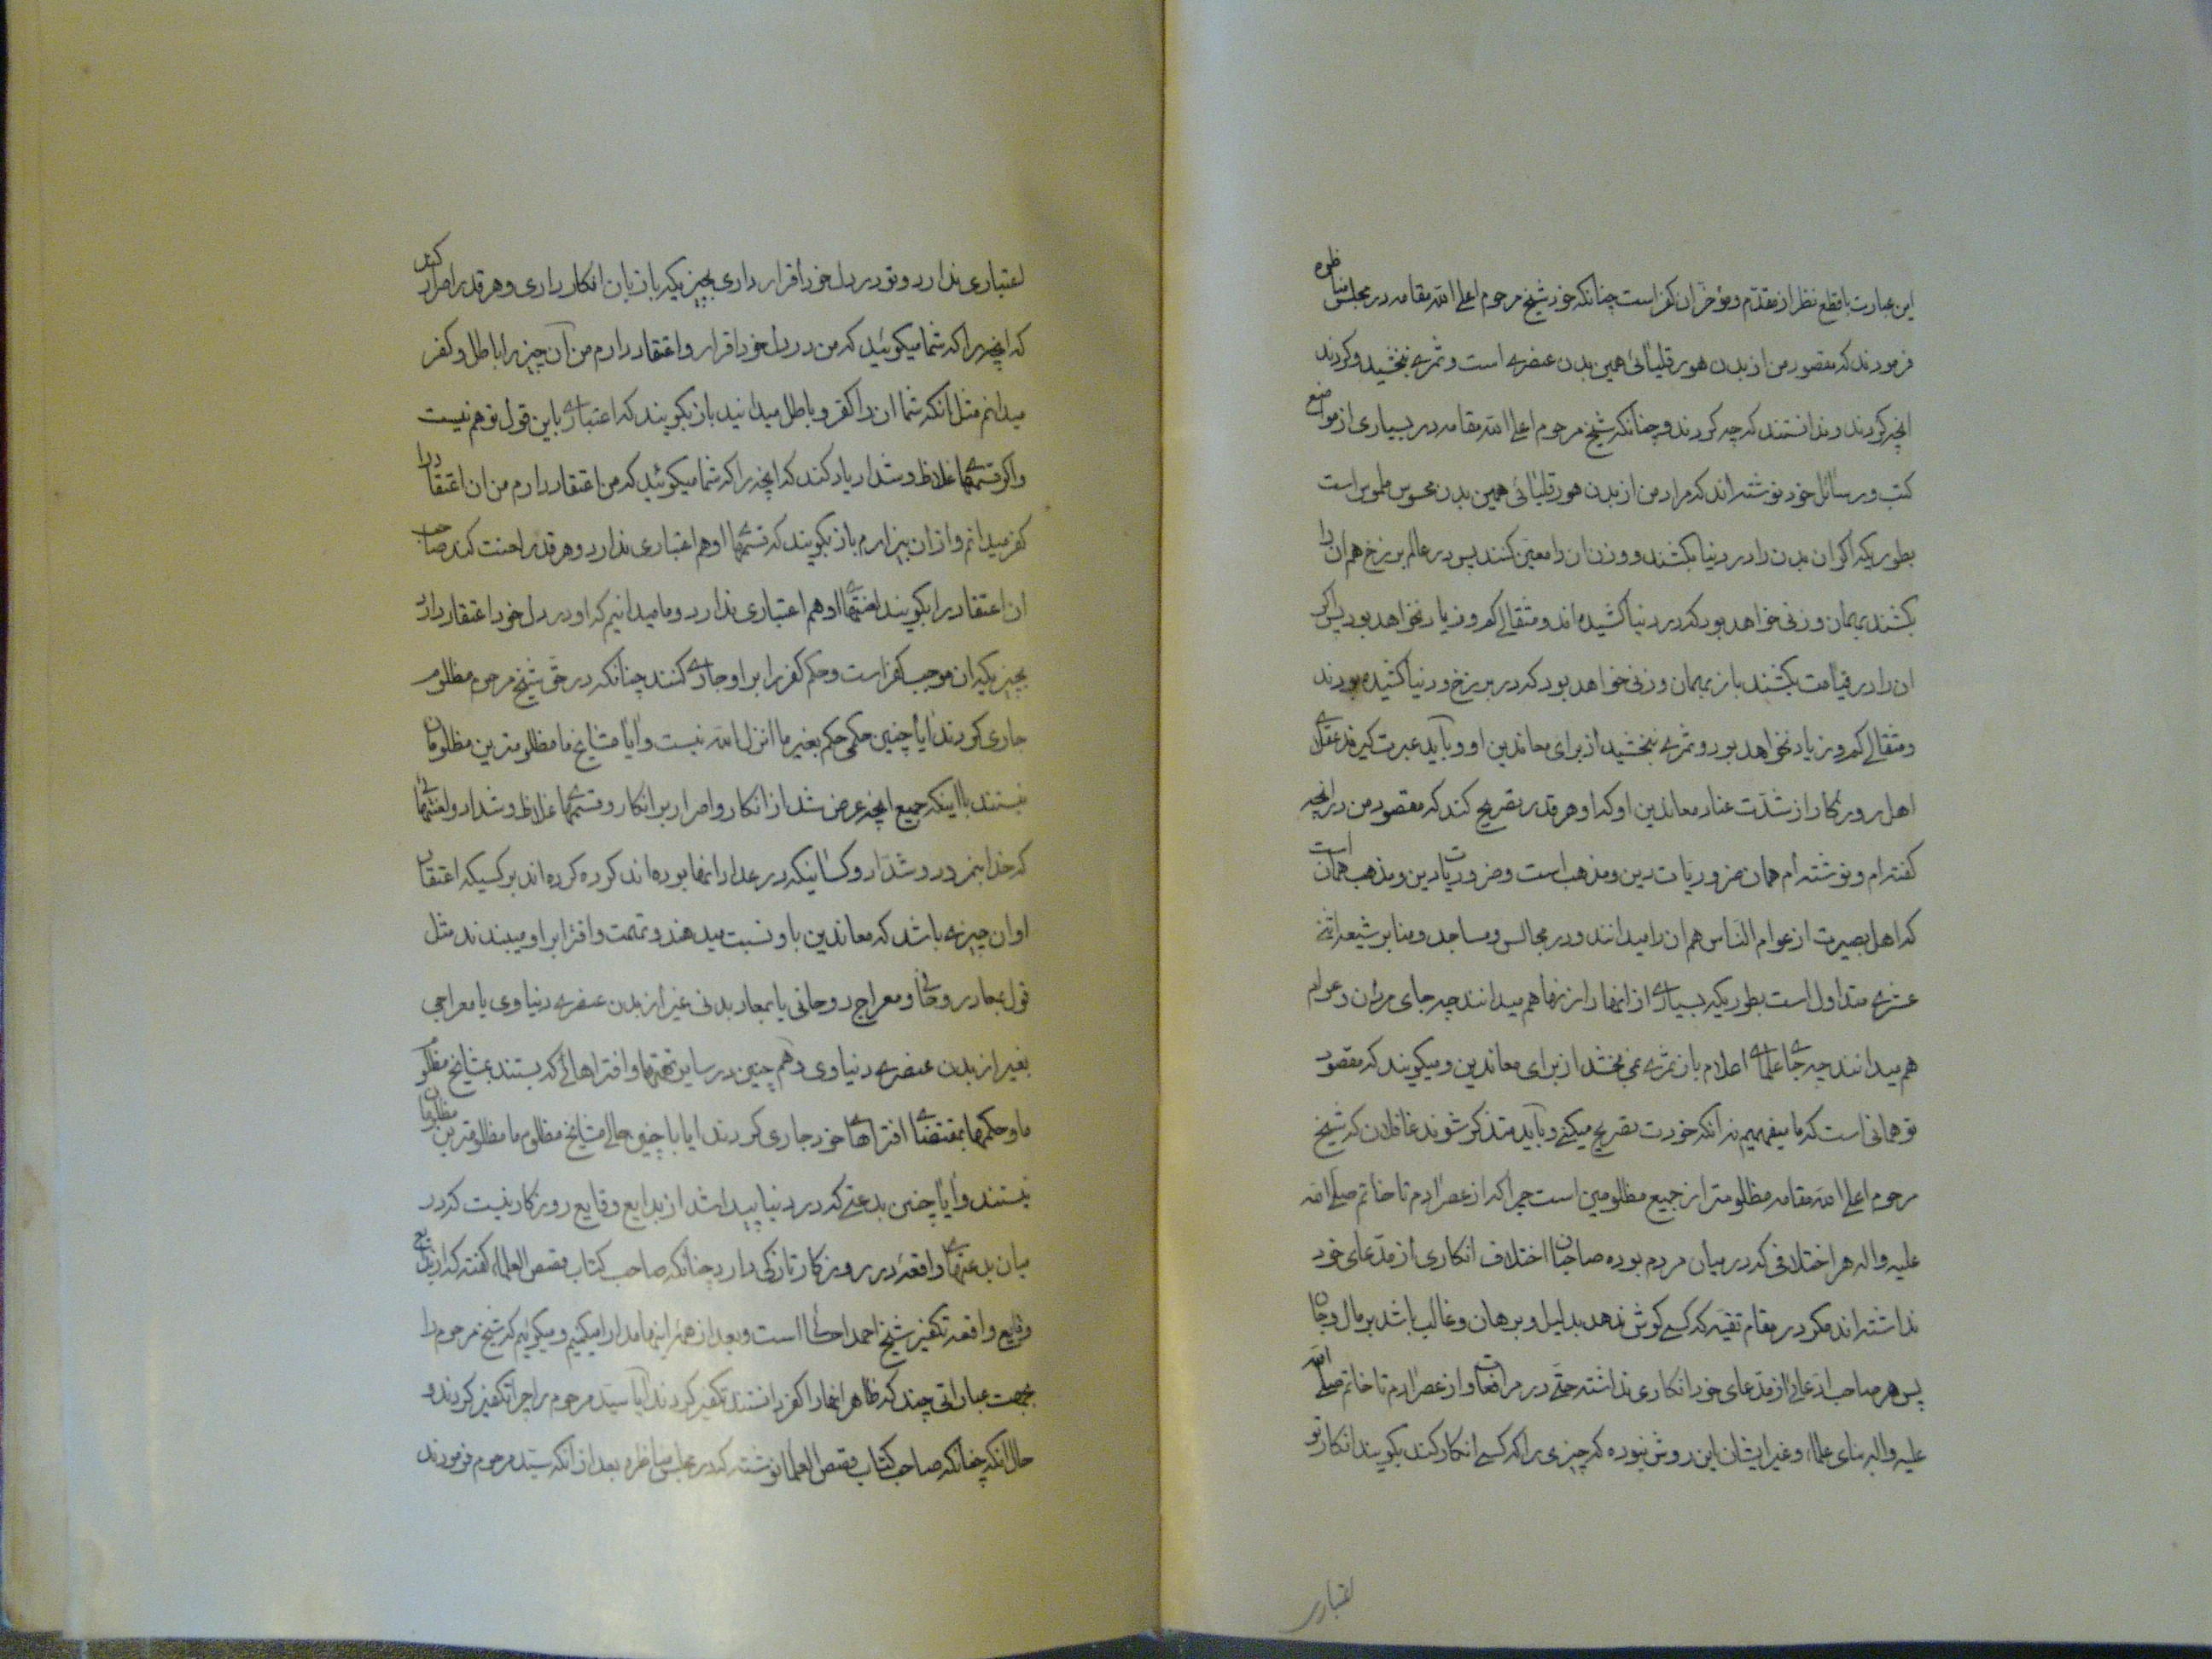 این عبارت با قطع نظر از مقدّم و مؤخّر آن کفر است چنانکه خود شیخ مرحوم اعلی الله مقامه در مجلس مناظره
فرمودند که مقصود من از بدن هورقلیائی همین بدن عنصری است و ثمری نبخشید و کردند
انچه کردند و ندانستند که چه کردند و چنانکه شیخ مرحوم اعلی الله مقامه در بسیاری از مواضع
کتب و رسائل خود نوشته‌اند که مراد من از بدن هورقلیائی همین بدن محسوس ملموس است
بطوریکه اکر ان بدن را در دنیا بکشند و وزن ان را معین کنند پس در عالم برزخ هم ان را
بکشند بهمان وزنی خواهد بود که در دنیا کشیده‌اند و مثقالی کم و زیاد نخواهد بود پس اکر
ان را در قیامت بکشند باز بهمان وزنی خواهد بود که در برزخ و دنیا کشیده بودند
و مثقالی کم و زیاد نخواهد بود و ثمری نبخشید از برای معاندین او و باید عبرت کیرند عقلای
اهل روزکار از شدّت عناد معاندین او که او هر قدر تصریح کند که مقصود من در انچه
کفته‌ام و نوشته‌ام همان ضروریات دین و مذهب است و ضروریات دین و مذهب همان است
که اهل بصیرت از عوام الناس هم ان را میدانند و در مجالس و مساجد و منابر شیعه اثنی
عشری متداول است بطوریکه بسیاری از انها را زنها هم میدانند چه جای مردان و عوام
هم میدانند چه جای علمای اعلام باز ثمری نمی‌بخشد از برای معاندین و میکویند که مقصود
تو همانی است که ما میفهمیم نه انکه خودت تصریح میکنی و باید متذکر شوند غافلان که شیخ
مرحوم اعلی الله مقامه مظلومتر از جمیع مظلومین است چرا که از عصر ادم تا خاتم صلی الله
علیه و اله هر اختلافی که در میان مردم بوده صاحبان اختلاف انکاری از مدّعای خود
نداشته‌اند مکر در مقام تقیه که کسی کوش ندهد بدلیل و برهان و غالب باشد بر مال و جان
پس هر صاحب ادّعائی از مدّعای خود انکاری نداشته حتّی در مرافعات و از عصر ادم تا خاتم صلی الله
علیه و اله بنای علماء و غیر ایشان این روش نبوده که چیزی را که کسی انکار کند بکویند انکار تو
اعتباری
اعتباری ندارد و تو در دل خود اقرار داری بچیزیکه با زبان انکار داری و هر قدر اصرار کند
که انچه را که شما میکوئید که من در دل خود اقرار و اعتقاد دارم من آن چیز را باطل و کفر
میدانم مثل انکه شما ان را کفر و باطل میدانید باز بکویند که اعتباری باین قول تو هم نیست
و اکر قسمهای غلاظ و شداد یاد کند که انچه را که شما میکوئید که من اعتقاد دارم من ان اعتقاد را
کفر میدانم و از ان بیزارم باز بکویند که قسمهای او هم اعتباری ندارد و هر قدر لعنت کند صاحب
ان اعتقاد را بکویند لعنتهای او هم اعتباری ندارد و ما میدانیم که او در دل خود اعتقاد دارد
بچیزیکه ان موجب کفر است و حکم کفر را بر او جاری کنند چنانکه در حق شیخ مرحوم مظلوم
جاری کردند ایا چنین حکمی حکم بغیر ما انزل الله نیست و ایا مشایخ ما مظلومترین مظلومان
نیستند با اینکه جمیع انچه عرض شد از انکار و اصرار بر انکار و قسمهای غلاظ و شداد و لعنتهائی
که خدا بنمرود و شدّاد و کسانیکه در عداد انها بوده‌اند کرده کرده‌اند بر کسیکه اعتقاد
او ان چیزی باشد که معاندین باو نسبت میدهند و تهمت و افترا بر او میبندند مثل
قول بمعاد روحانی و معراج روحانی یا بمعاد بدنی غیر از بدن عنصری دنیاوی یا معراجی
بغیر از بدن عنصری دنیاوی و هم چنین در سایر تهمتها و افتراهائی که بستند بمشایخ مظلوم
ما و حکمها بمقتضای افتراهای خود جاری کردند ایا با چنین حالی مشایخ مظلوم ما مظلومترین مظلومان
نیستند و ایا چنین بدعتی که در دنیا پیدا شد از بدایع وقایع روزکار نیست که در
میان بدعتهای واقعه در روزکار تازکی دارد چنانکه صاحب کتاب قصص العلماء کفته که از بدایع
وقایع واقعه تکفیر شیخ احمد احسائی است و بعد از همه اینها مدارا میکنیم و میکوئیم که شیخ مرحوم را
بجهت عباراتی چند که ظاهر انها را کفر دانستند تکفیر کردند آیا سیّد مرحوم را چرا تکفیر کردند و
حال انکه چنانکه صاحب کتاب قصص العلما نوشته که در مجلس مناظره بعد از انکه سیّد مرحوم فرمودند